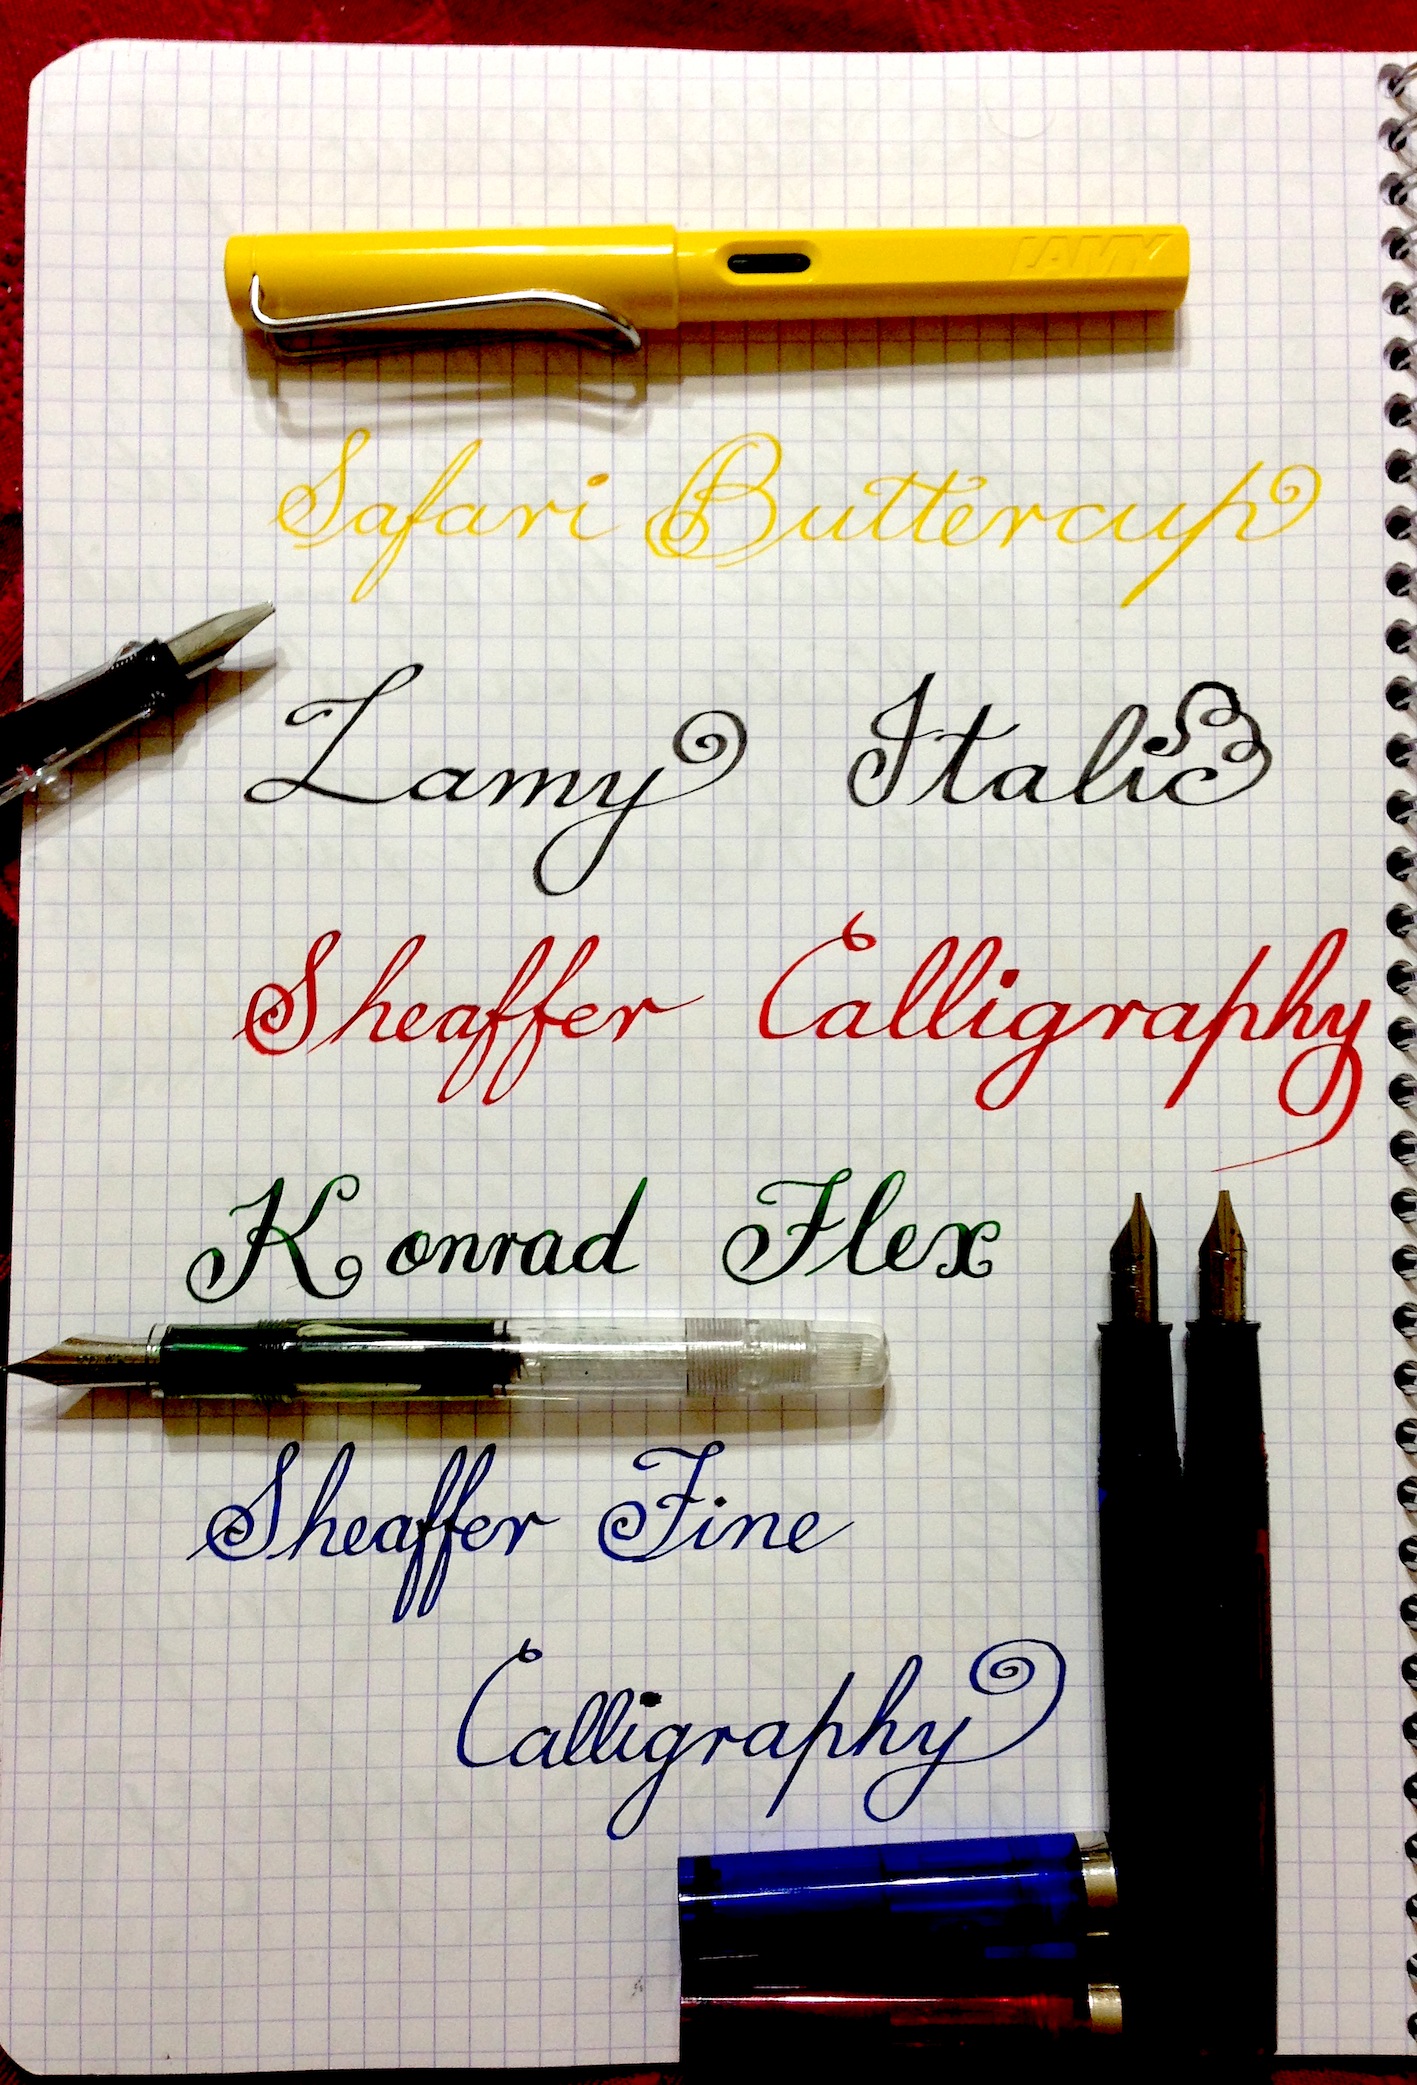 LAMY
Safari Buttercup
Lamy Italic
Sheaffer Calligraphy
Konrad Flex
Sheaffer Fine
Calligraphy